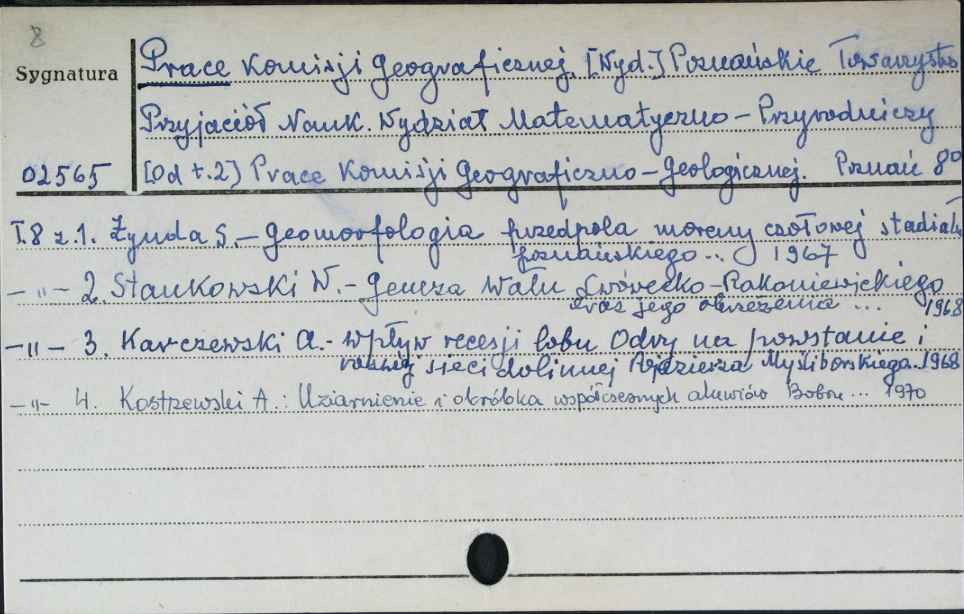 8
Sygnatura
Prace Komisji Geograficznej. [Wyd.] Poznańskie Towarzystwo
Przyjaciół Nauk. Wydział Matematyczno-Przyrodniczy
02565 [Od t.2] Prace Komisji Geograficzno-Geologicznej. Poznań 8°
T.8 z.1. Żynda S. - Geomorfologia przedpola moreny czołowej stadiału
poznańskiego... 1967
-"- 2. Stankowski W. - Geneza Wału Lwówecko-Rakoniewickiego
oraz jego obrzeżenia ... 1968
-"- 3. Karczewski A. - Wpływ recesji lobu Odry na powstanie i
rozwój sieci dolinnej Pojezierza Myśliborskiego. 1968
-"- 4. Kostrzewski A.: Uziarnienie i obróbka współczesnych aluwiów Bobru ... 1970